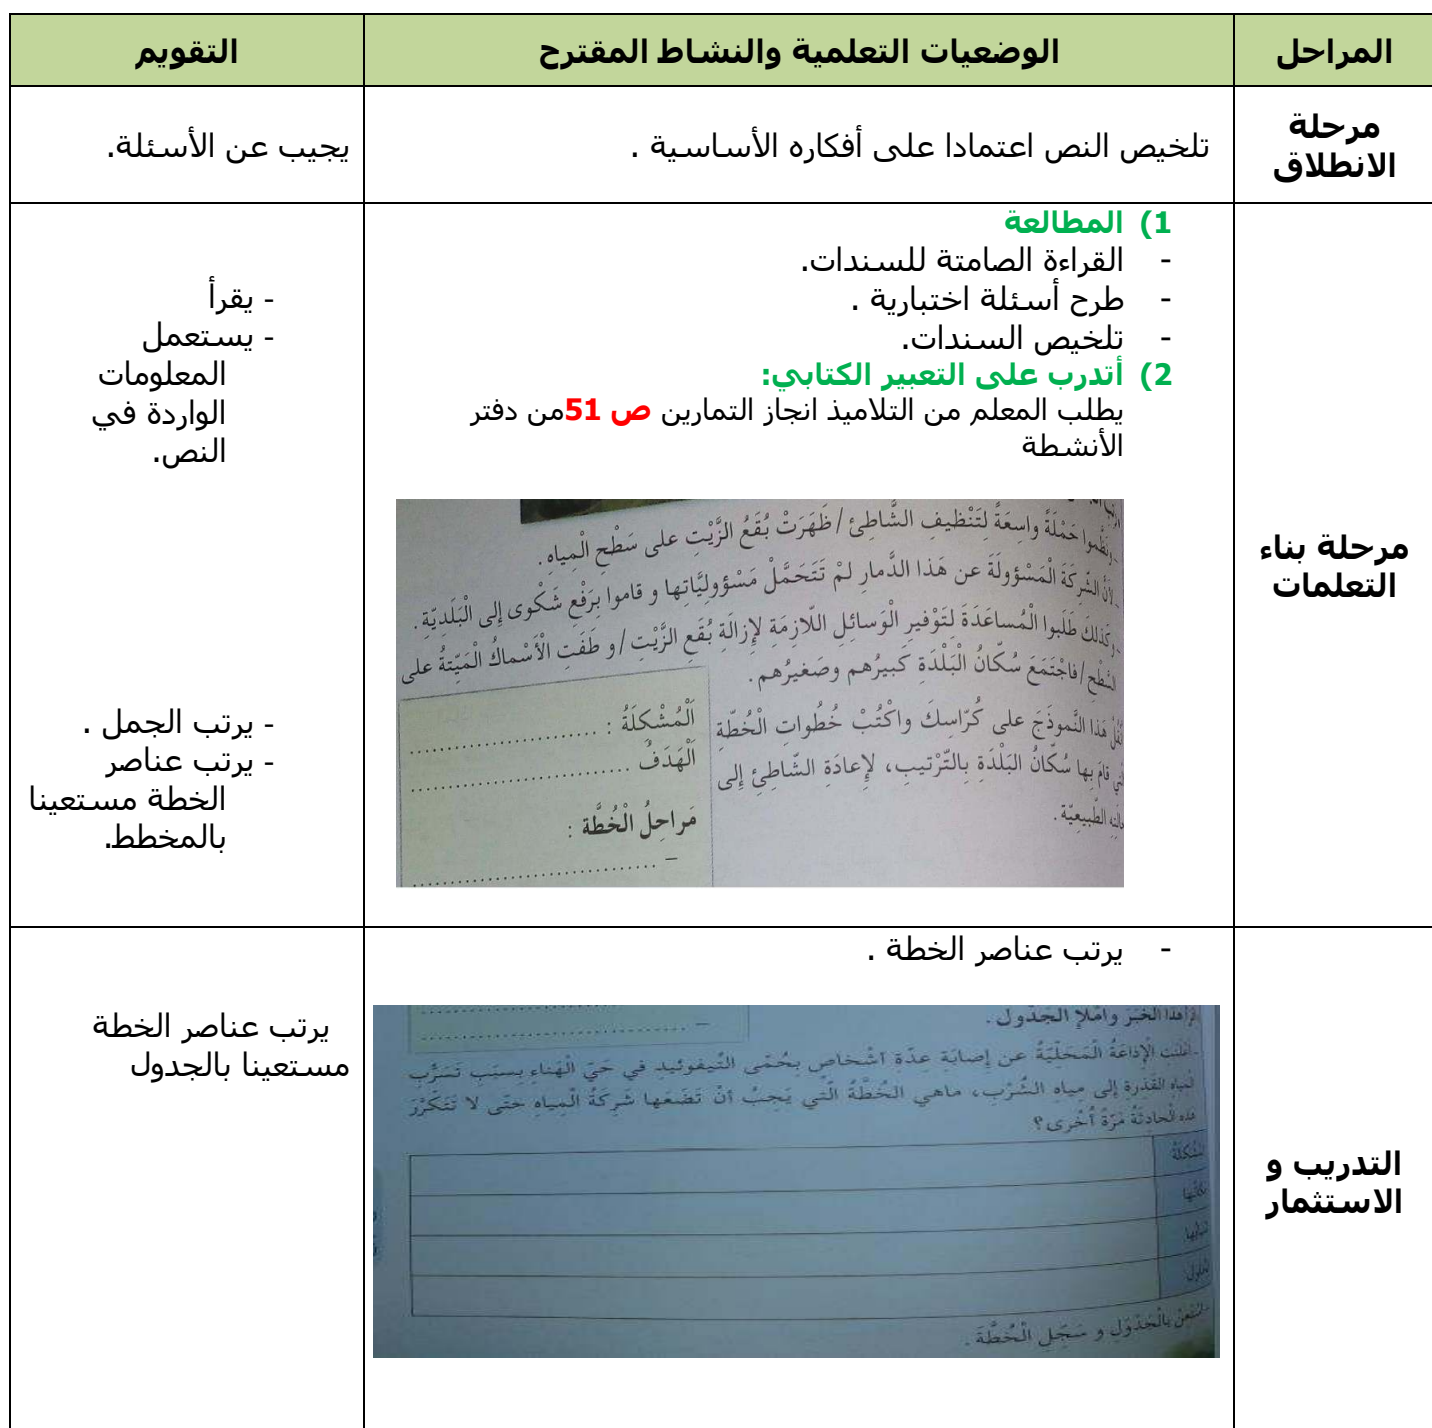 المراحل
الوضعيات التعلمية والنشاط المقترح
التقويم
مرحلة
الانطلاق
تلخيص النص اعتمادا على أفكاره الأساسية .
يجيب عن الأسئلة.
مرحلة بناء
التعلمات
1) المطالعة
- القراءة الصامتة للسندات.
- طرح أسئلة اختبارية .
- تلخيص السندات.
2) أتدرب على التعبير الكتابي:
يطلب المعلم من التلاميذ انجاز التمارين ص 51من دفتر
الأنشطة
- ونَظَّموا حَمْلَةً واسِعَةً لِتَنْظيفِ الشَّاطِئ / ظَهَرَتْ بُقَعُ الزَّيْتِ على سَطْحِ الْمِياهِ .
- لأنَّ الشَّرِكَةَ الْمَسْؤولَةَ عن هَذا الدَّمارِ لمْ تَتَحَمَّلْ مَسْؤوليَّاتِها و قاموا بِرَفْعِ شَكْوى إلى الْبَلَديّةِ .
- وكَذلكَ طَلَبوا الْمُساعَدَةَ لِتَوْفيرِ الْوَسائلِ اللّازِمَةِ لإزالَةِ بُقَعِ الزَّيْتِ / و طَفَتِ الْأَسْماكُ الْمَيّتةُ على
السَّطْحِ / فاجْتَمَعَ سُكّانُ الْبَلْدَةِ كَبيرُهم وصَغيرُهم .
هَذا النَّموذَجَ على كُرّاسِكَ واكْتُبْ خُطُواتِ الْخُطّةِ
الَّتي قامَ بِها سُكّانُ البَلْدَةِ بِالتّرْتيبِ، لإعادَةِ الشّاطِئِ إلى
حالَتِهِ الطّبيعِيّة .
اَلْمُشْكِلَةُ : ..........................
اَلْهَدَفُ ..........................
..........................
مَراحِلُ الْخُطَّة :
– ..........................
- يقرأ
- يستعمل
المعلومات
الواردة في
النص.
- يرتب الجمل .
- يرتب عناصر
الخطة مستعينا
بالمخطط.
التدريب و
الاستثمار
- يرتب عناصر الخطة .
هذا الخَبَرَ وامْلإِ الجَدْول .
- أعْلَنَتِ الْإِذاعَةُ الْمَحَلّيّةُ عن إصابَةِ عِدّةِ أشْخاصٍ بحُمّى التّيفوئيدِ في حَيِّ الْهَناءِ بِسبَبِ تَسَرُّبِ
الْمياهِ القَذِرةِ إلى مِياهِ الشُّرْبِ، ماهي الخُطَّةُ الّتي يَجِبُ أنْ تَضَعَها شَرِكَةُ الْمِياهِ حتّى لا تَتَكَرَّرَ
هذه الْحادثَةُ مَرّةً أُخْرى ؟
المُشْكلَةُ
مكانُها
الْحُلول
- اسْتَعِنْ بالْجَدْوَلِ و سَجّلِ الْخُطَّةَ .
يرتب عناصر الخطة
مستعينا بالجدول